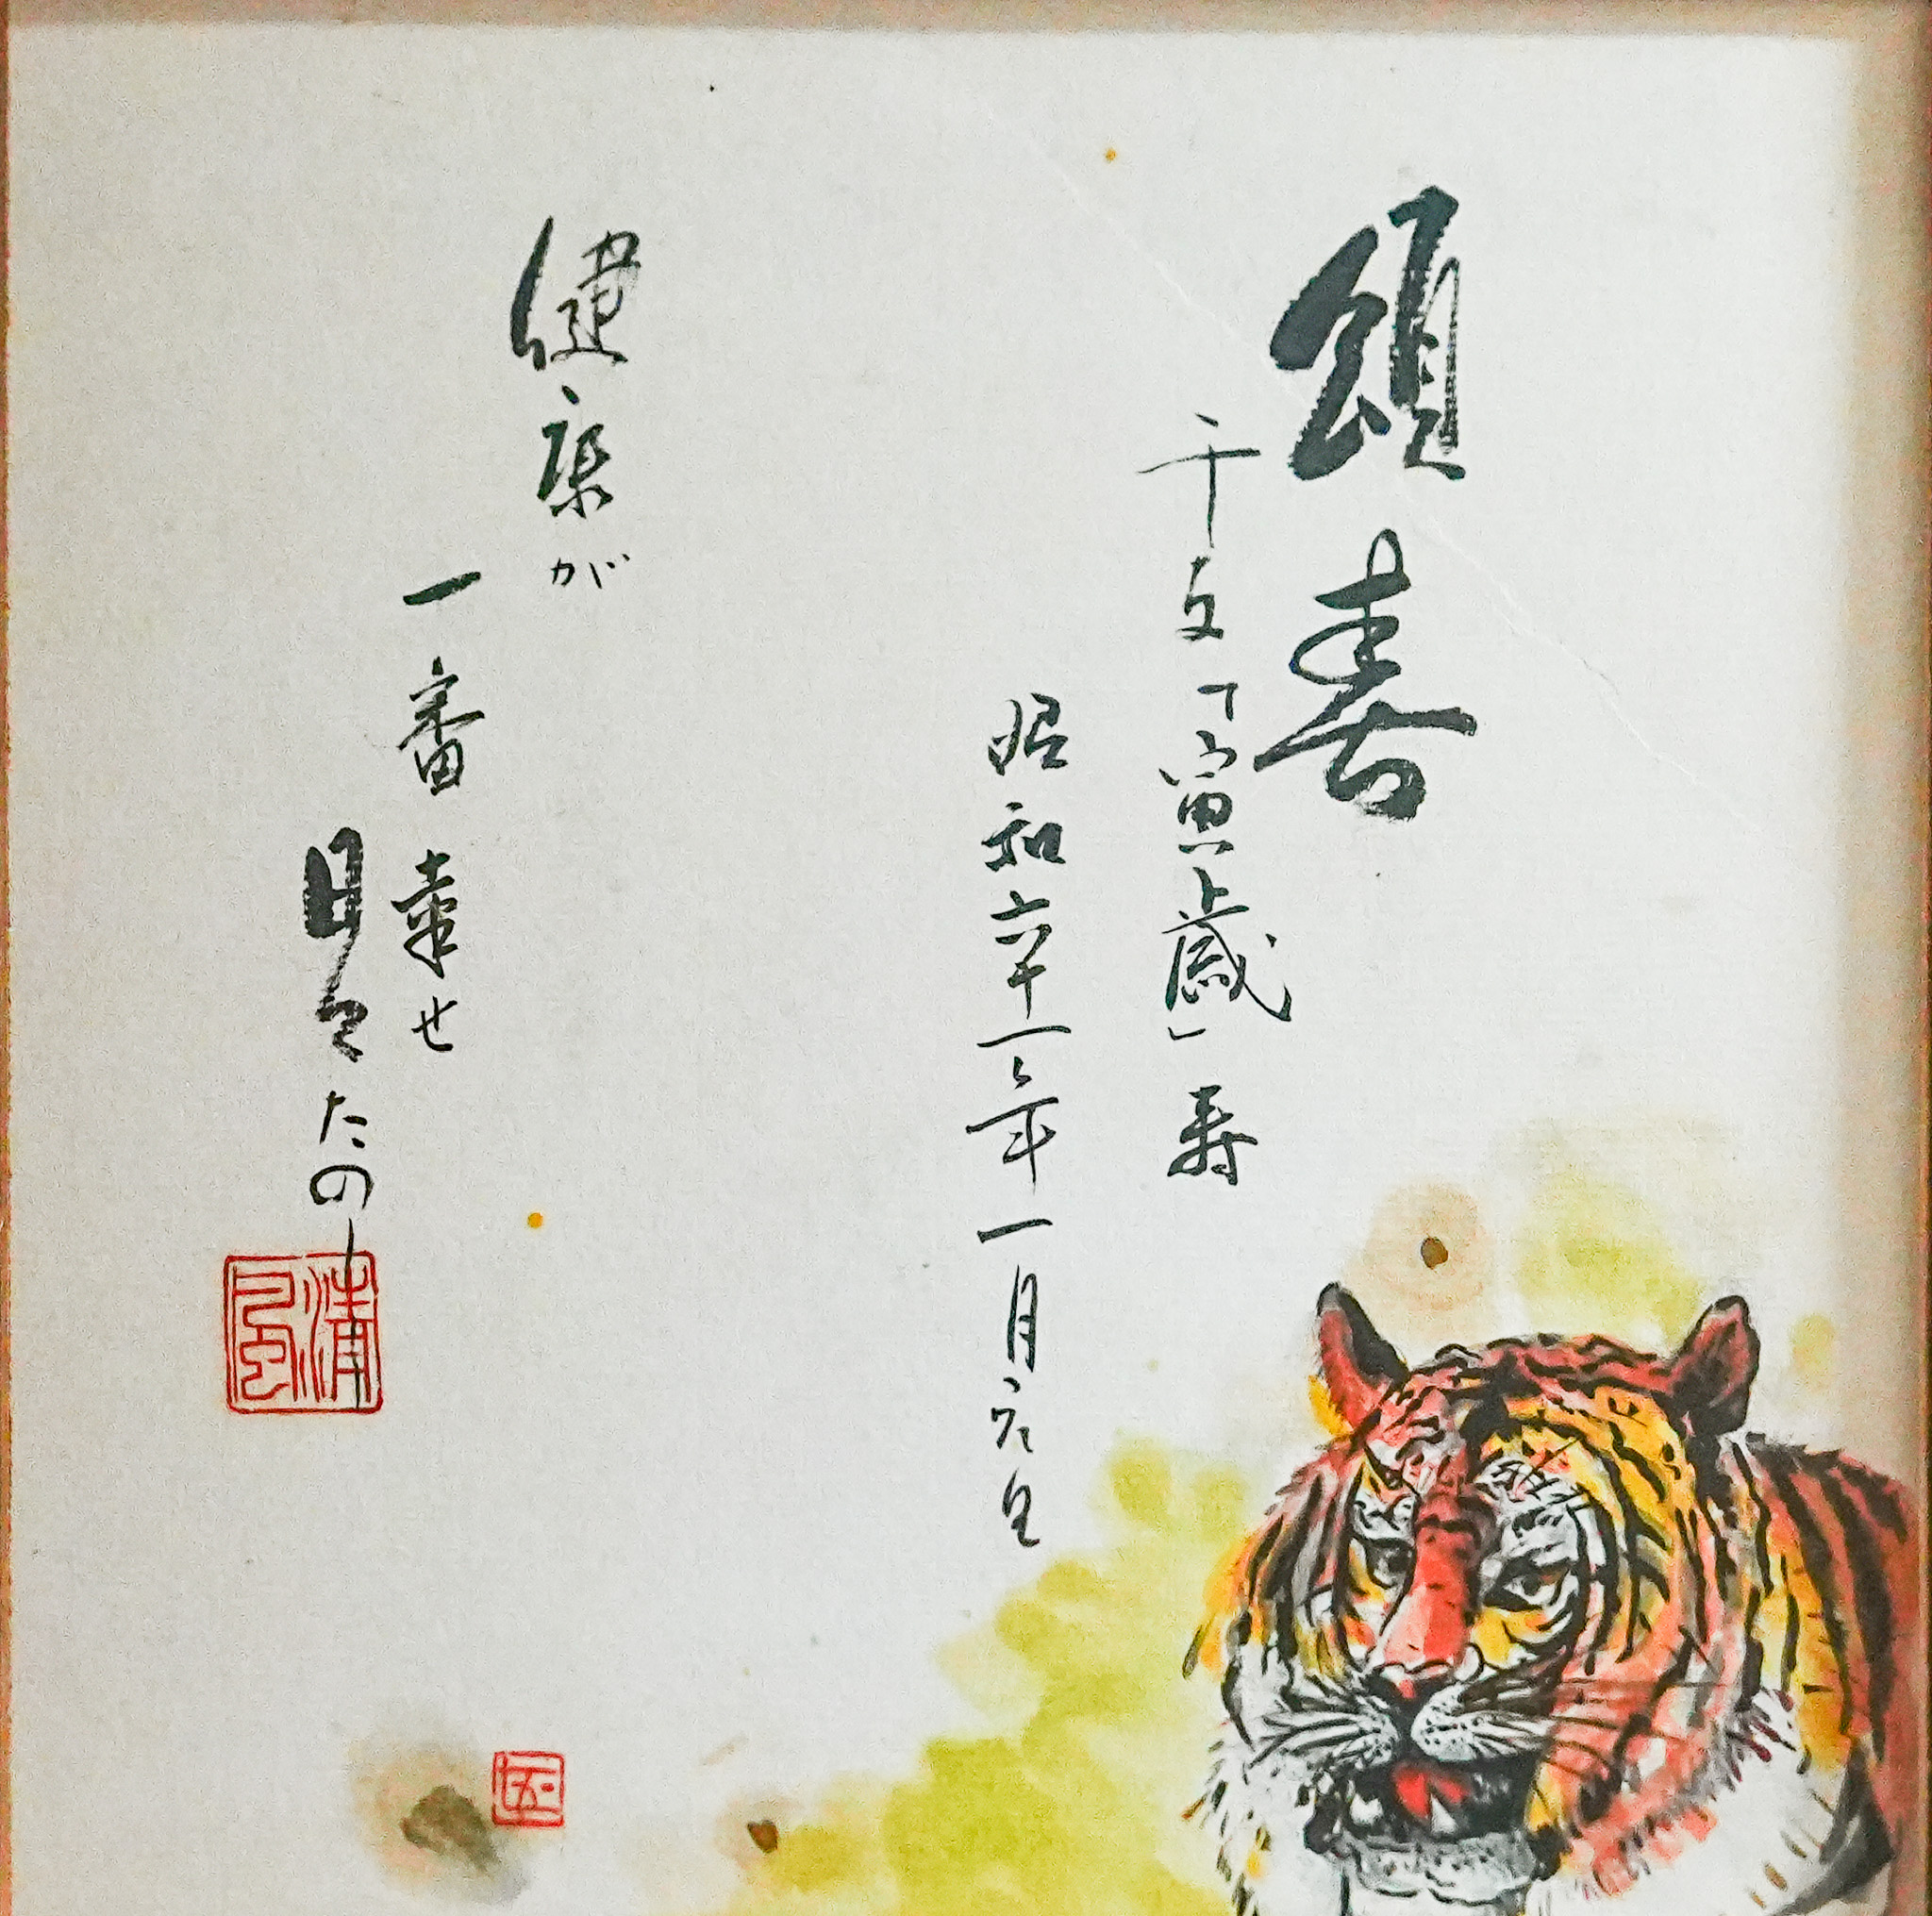 頌春
干支「寅歳」寿
昭和六十一年一月元旦
健康が
一番幸せ
日々たのし